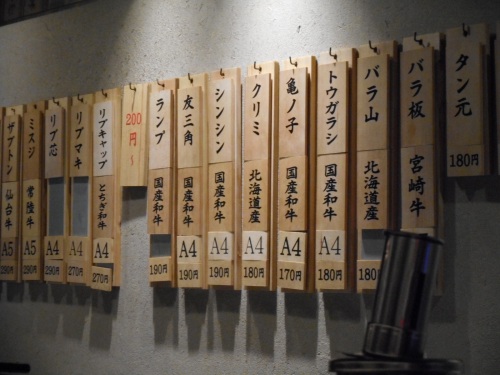 タン元
180円
バラ板
宮崎牛
バラ山
北海道産
180円
トウガラシ
国産和牛
A4
180円
亀ノ子
国産和牛
A4
170円
クリミ
北海道産
A4
180円
シンシン
国産和牛
A4
190円
友三角
国産和牛
A4
190円
ランプ
国産和牛
190円
200円〜
リブキャップ
とちぎ和牛
A4
270円
リブマキ
A4
270円
リブ芯
A4
290円
ミスジ
常陸牛
A5
290円
ザブトン
仙台牛
A5
290円